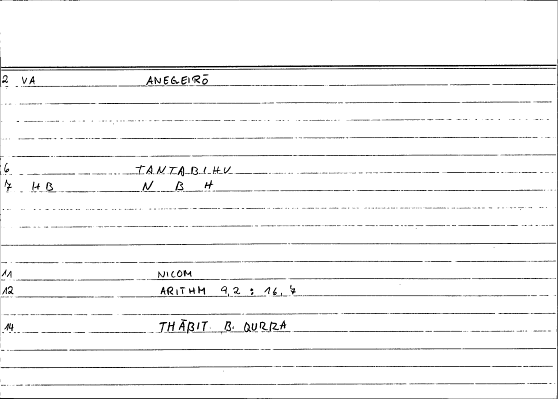 2 VA ANEGEIRŌ
6 TANTABIHU
7 HB N B H
11 NICOM
12 ARITHM 9,2 : 16,7
14 THĀBIT B. QURRA